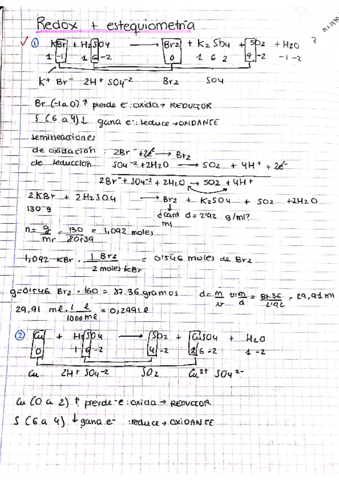 Redox + estequiometría
① KBr + H2SO4 → Br2 + K2SO4 + SO2 + H2O
1 -1 1 6 -2 0 1 6 2 4 -2 1 -2
K+ Br- 2H+ SO4-2 Br2 SO4
Br (-1 a 0) ↑ pierde e-: oxida → REDUCTOR
S (6 a 4) ↓ gana e-: reduce → OXIDANTE
semireacciones
de oxidación : 2Br- + 2e- → Br2
de reducción SO4-2 + 2H2O → SO2 + 4H+ + 2e-
2Br- + SO4-2 + 2H2O → SO2 + 4H+
2KBr + 2H2SO4 → Br2 + K2SO4 + SO2 + 2H2O
130 g ¿cant d = 2'92 g/ml?
n = g/mr = 130 = 1,092 moles
1,092 KBr · 1 Br2 / 2 moles KBr = 0'546 moles de Br2
g = 0'546 Br2 · 160 = 87.36 gramos d = m/v v = m/d = 87.36/2'92 = 29,91 ml
29,91 ml · 1 l / 1000 ml = 0,2991 l
② Cu + H2SO4 → SO2 + CuSO4 + H2O
0 1 6 -2 4 -2 2 6 -2 1 -2
Cu 2H+ SO4-2 SO2 Cu2+ SO4 2-
Cu (0 a 2) ↑ pierde e-: oxida → REDUCTOR
S (6 a 4) ↓ gana e- : reduce → OXIDANTE